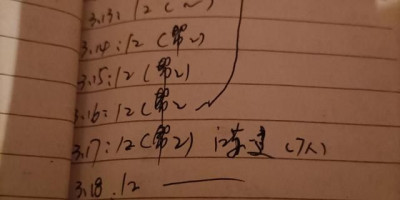 3.13: 12 (~)
3.14: 12 (第2)
3.15: 12 (第2)
3.16: 12 (第2
3.17: 12 (第2) (7人)
3.18. 12 ——